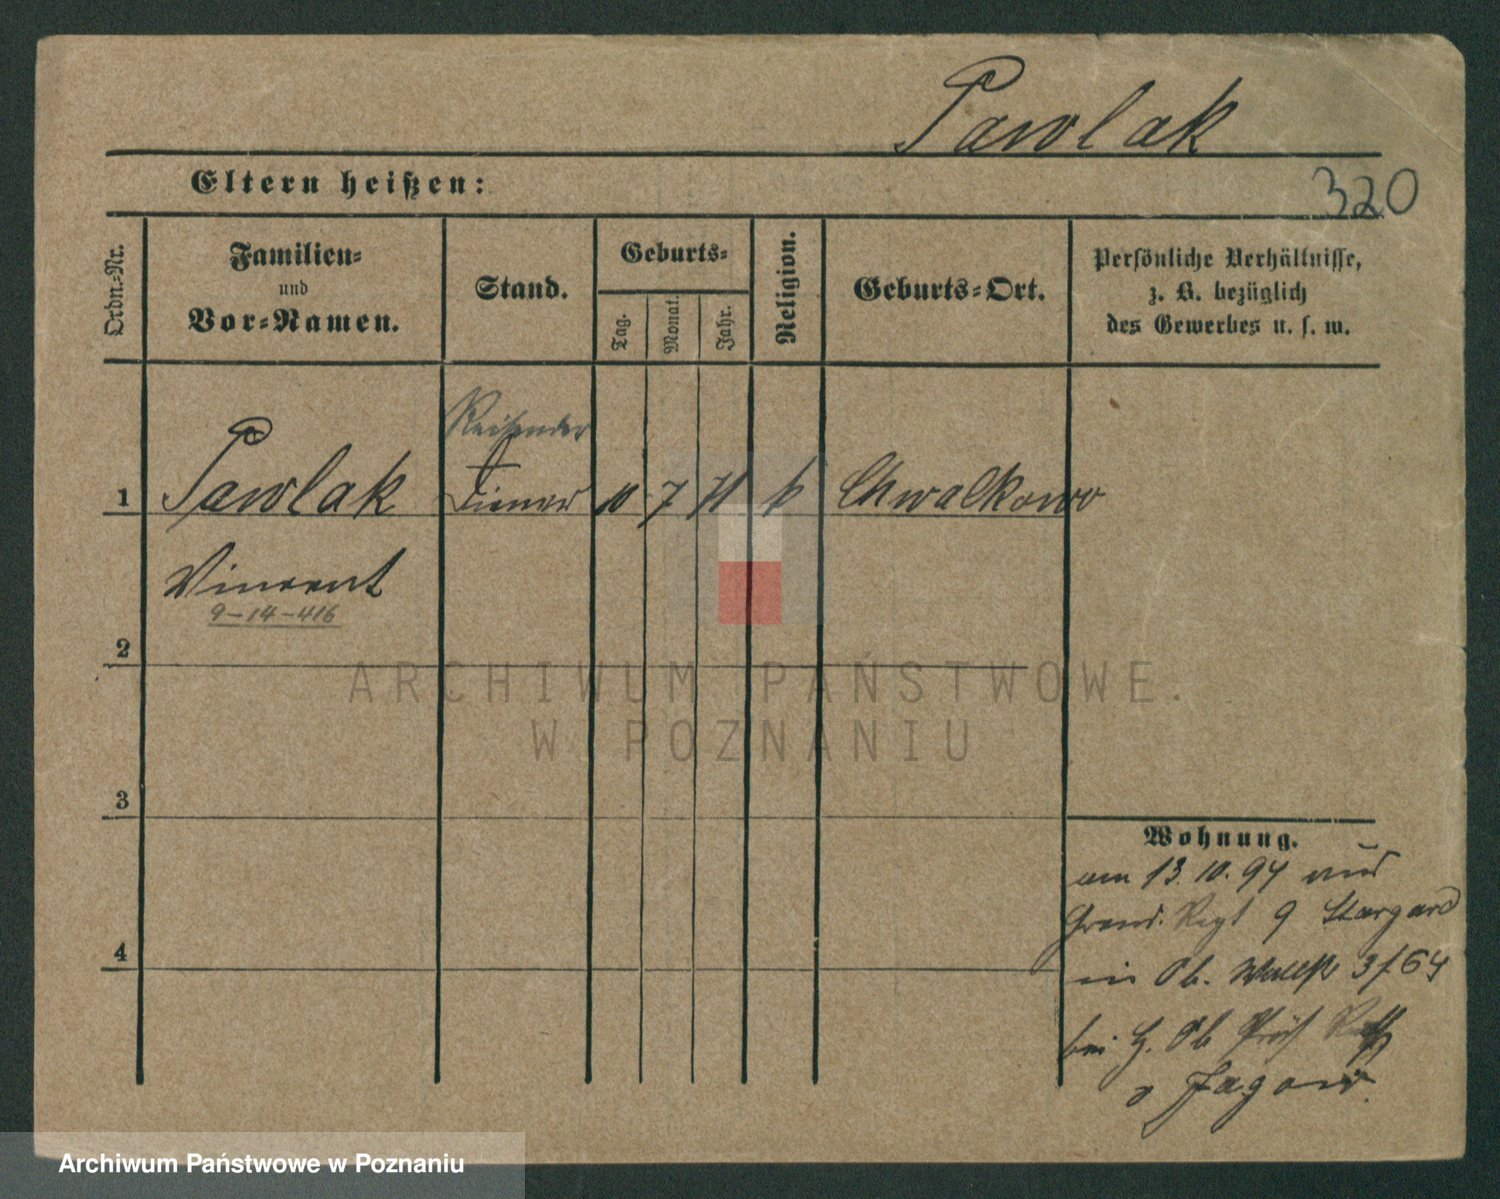 Pawlak
Eltern heißen:
320
Ordn.-Nr.
Familien-
und
Vor-Namen.
Stand.
Geburts-
Tag.
Monat.
Jahr.
Religion.
Geburts-Ort.
Persönliche Verhältnisse,
z. B. bezüglich
des Gewerbes u. s. w.
Reisender
1 Pawlak Diener 10 7 71 k Chwalkowo
Vincent
9-14-416
2
ARCHIWUM PAŃSTWOWE
W POZNANIU
3
Wohnung.
am 13. 10. 94 aus
Gren. Regt 9 Stargard
4
in Ob. Wallstr 3 f. 64
bei H. Ob Präs
v Jagow.
Archiwum Państwowe w Poznaniu